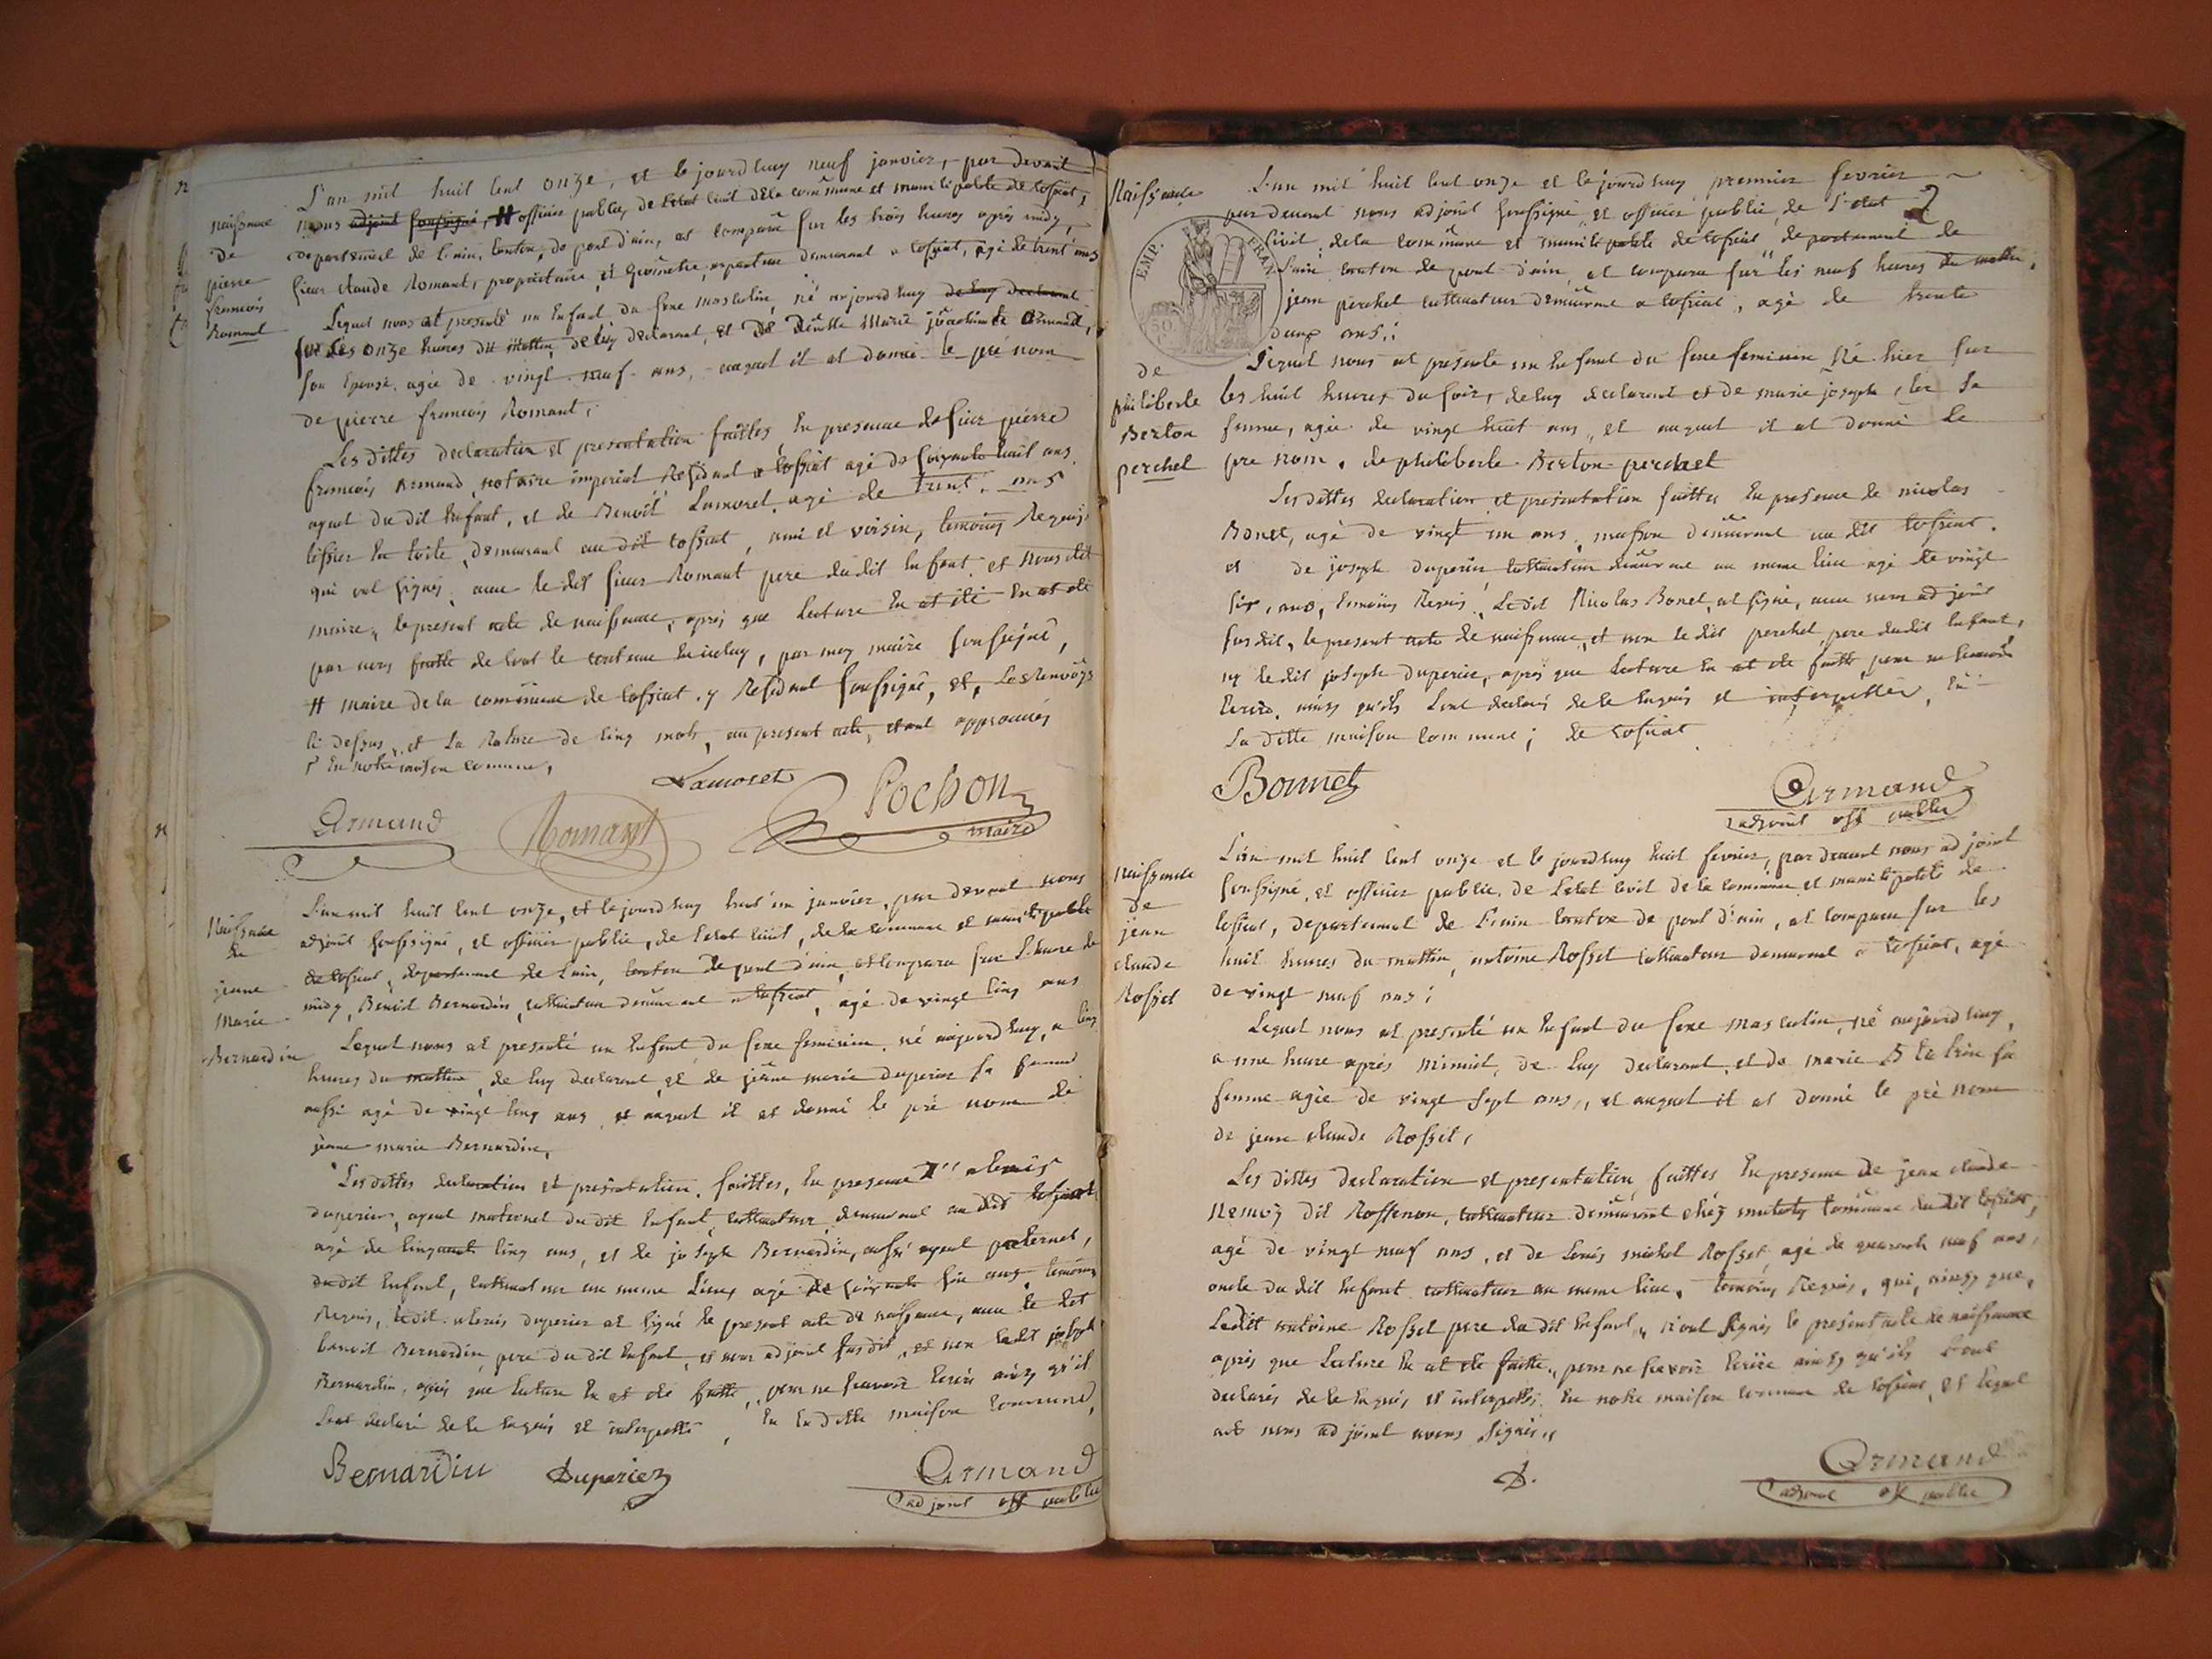 n
naissance
de
pierre
francois
Romant
L'an mil huit cent onze, et le jourd'huy neuf janvier, par devant
nous adjoint soussigné, # officier public, de l'etat civil de la commune et municipalité de tossiat,
departement de l'ain, canton de pont d'ain, at comparu sur les trois heures après midy,
sieur claude Romant, propriétaire, et géomètre, demeurant a tossiat, agé de trent ans
Lequel nous at presenté un enfant du sexe masculin, né aujourd'huy de luy declarant
sur les onze heures du mattin, de luy declarant, et de demlle Marie Armand,
son épouse, agée de vingt neuf ans, auquel il at donné le pré nom
de pierre francois Romant,
Les dittes declaration et presentation faittes, en presence de sieur pierre
francois Armand, notaire imperial residant a tossiat agé de soixante huit ans
ayeul du dit enfant, et de Benoit Lamoret agé de trent ans
tissier en toile, demeurant au dit tossiat, ami et voisin, temoins Requis,
qui ont signés, avec le dit sieur Romant pere du dit enfant, et nous dit
maire, le present acte de naissance, après que lecture en at été
par nous faitte de tout le contenue en iceluy, par moy maire soussigné,
# maire de la commune de tossiat y residant soussigné, et, les renvoys
ci dessus, et la rature de cinq mots, au present acte, etant approuvés
en notre maison commune,
Lamoret
Pochon
maire
Armand
Romant
n
Naissance
de
jeanne
Marie
Bernardin
L'an mil huit cent onze, et le jourd'huy trent un janvier, par devant nous
adjoint soussigné, et officier public, de l'etat civil, de la commune et municipalité
de tossiat, departement de l'ain, canton de pont d'ain, at comparu sur l'heure de
midy, Benoit Bernardin, cultivateur demeurant a tossiat, agé de vingt cinq ans
Lequel nous at presenté un enfant du sexe feminin, né aujourd'huy, a cinq
heures du mattin, de luy declarant, et de jeanne marie duperier sa femme
aussi agé de vingt cinq ans, et auquel il at donné le pré nom de
jeanne marie Bernardin,
Les dittes declaration et presentation, faittes, en presence d'alexis
duperier, ayeul maternel du dit enfant, cultivateur demeurant au dit tossiat
agé de cinquante cinq ans, et de joseph Bernardin, aussi ayeul paternel,
du dit enfant, cultivateur au meme lieu, agé de soixante six ans, temoins
Requis, le dit alexis duperier at signé le present acte de naissance, avec le dit
benoit Bernardin, pere du dit enfant, et nous adjoint susdit, et non le dit joseph
Bernardin, après que lecture en at été faitte, pour ne sçavoir écrire ainsy qu'il
l'at declaré de ce enquis et interpellé, en la ditte maison commune,
Bernardin
Duperier
Armand
adjoint off public
Naissance
EMP. FRAN.
de
philiberte
Berton
perchet
L'an mil huit cent onze et le jourd'huy premier fevrier
par devant nous adjoint soussigné, et officier public, de l'etat
civil, de la commune et municipalité de tossiat, departement de
l'ain canton de pont d'ain, at comparu sur les neuf heures du mattin,
jean perchet cultivateur demeurant a tossiat, agé de trente
deux ans;
Lequel nous at presenté un enfant du sexe feminin, Né hier sur
les huit heures du soir, de luy declarant et de marie joseph sa
femme, agée de vingt huit ans, et auquel il at donné le
pre nom, de philiberte Berton perchet
Les dittes declaration et presentation faittes en presence de nicolas
Bonet, agé de vingt un ans, masson demeurant au dit tossiat.
et de joseph duperier cultivateur demeurant au meme lieu agé de vingt
six, ans, temoins Requis, Le dit Nicolas Bonet, at signé, avec nous adjoint
susdit, le present acte de naissance, et non le dit perchet pere du dit enfant,
ny le dit joseph duperier, après que lecture en at été faitte, pour ne sçavoir
écrire, ainsy qu'ils l'ont declaré de ce enquis et interpellés, en
la ditte maison commune; de tossiat
Bonnet
Armand
adjoint off public
Naissance
de
jean
claude
Rosset
L'an mil huit cent onze et le jourd'huy huit fevrier, par devant nous adjoint
soussigné, et officier public, de l'etat civil de la commune et municipalité de
tossiat, departement de l'ain canton de pont d'ain, at comparu sur les
huit heures du mattin, antoine Rosset cultivateur demeurant a tossiat, agé
de vingt neuf ans;
Lequel nous at presenté un enfant du sexe masculin, né aujourd'huy,
a une heure après minuit, de luy declarant, et de marie sa
femme agée de vingt sept ans, et auquel il at donné le pré nom
de jean claude Rosset,
Les dittes declaration et presentation faittes en presence de jean claude
Nemoz dit Rossenon, cultivateur demeurant chéz commune du dit tossiat,
agé de vingt neuf ans, et de Louis michel Rosset, agé de quarante neuf ans,
oncle du dit enfant cultivateur au meme lieu, temoins Requis, qui, ainsy que,
Ledit antoine Rosset pere du dit enfant, n'ont signés le present acte de naissance
après que lecture en at été faitte, pour ne sçavoir écrire ainsy qu'ils l'ont
declarés de ce enquis, et interpellés, en notre maison commune de tossiat, et lequel
acte nous adjoint avons signés,
D.
Armand
adjoint off public